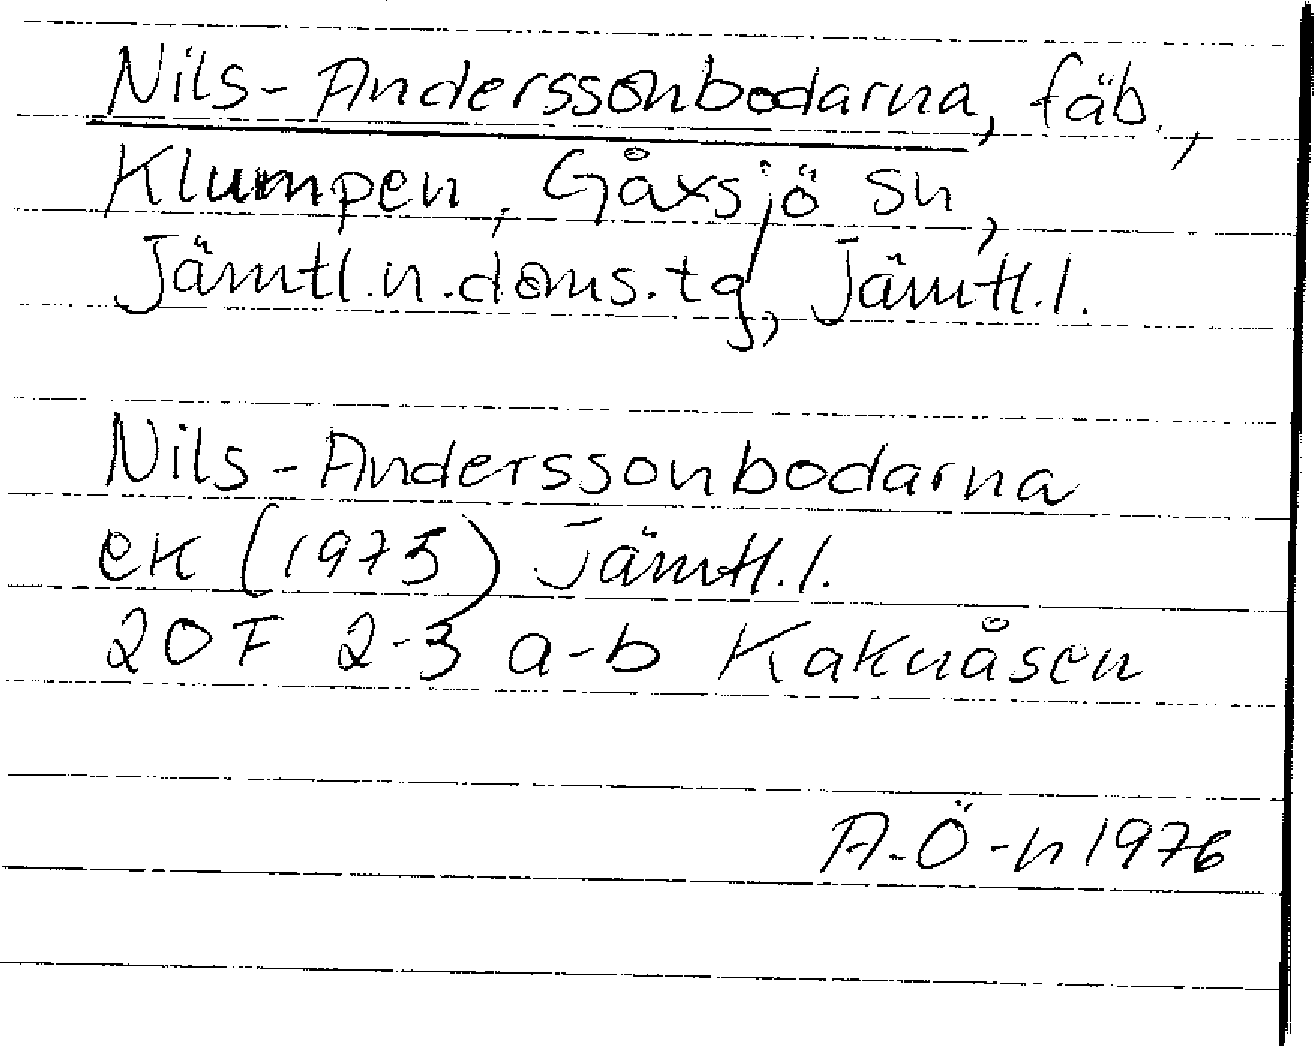 Nils-Anderssonbodarna, fäb.,
Klumpen, Gåxsjö sn,
Jämtl.n.doms.tg, Jämtl.l.
Nils-Anderssonbodarna
ek (1975) Jämtl.l.
20F 2-3 a-b Kaknåsen
A.Ö-n 1976